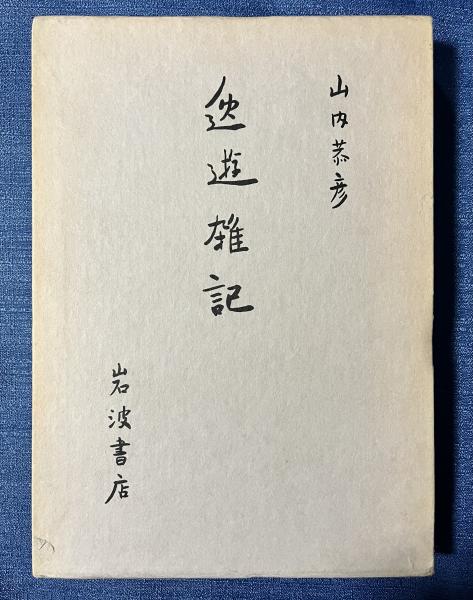 山内恭彦
遊雑記
岩波書店